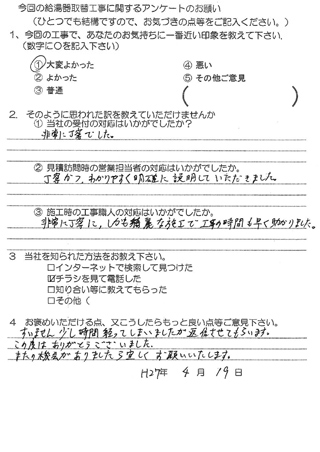 今回の給湯器取替工事に関するアンケートのお願い
(ひとつでも結構ですので、お気づきの点等をご記入ください。)
1、今回の工事で、あなたのお気持ちに一番近い印象を教えて下さい。
(数字に○を記入下さい)
① 大変よかった ④ 悪い
② よかった ⑤ その他ご意見
③ 普通 ( )
2. そのように思われた訳を教えていただけませんか
① 当社の受付の対応はいかがでしたか?
非常に丁寧でした。
② 見積訪問時の営業担当者の対応はいかがでしたか。
丁寧かつ、わかりやすく明確に説明していただきました。
③ 施工時の工事職人の対応はいかがでしたか。
非常に丁寧に、しかも綺麗な施工で工事の時間も早く助かりました。
3 当社を知られた方法をお教え下さい。
□インターネットで検索して見つけた
☑チラシを見て電話した
□知り合い等に教えてもらった
□その他(
4 お褒めいただける点、又こうしたらもっと良い点等ご意見下さい。
すいません 少し時間経ってしまいましたが返信させてもらいます。
この度は ありがとうございました。
またの機会がありましたら宜しくお願いいたします。
H27年 4月 19日